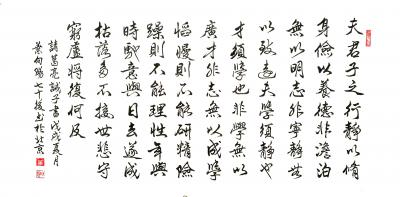 夫君子之行静以脩
身儉以養德非澹泊
無以明志非寧静無
以致遠夫學須静也
才須學也非學無以
廣才非志無以成學
慆慢則不能研精險
躁則不能理性年與
時馳意與日去遂成
枯落多不接世悲守
窮廬將復何及
諸葛亮誡子書戊戌夏月
葉向陽七十後書於北京